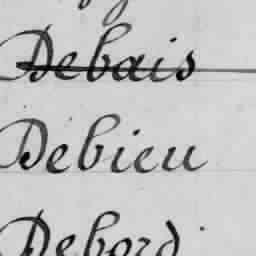 Debais
Debieu
Debord